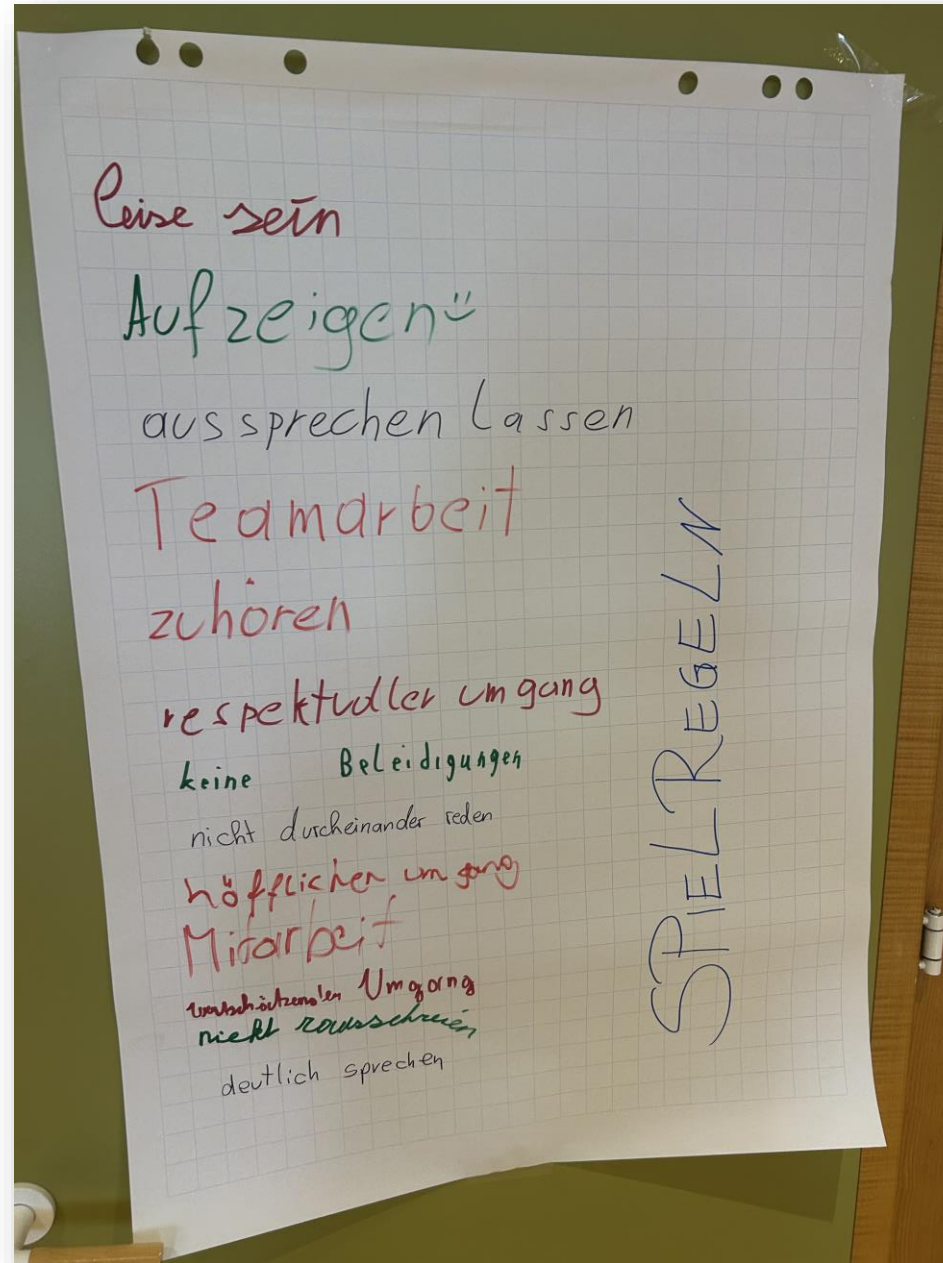 leise sein
Aufzeigen ü
aussprechen lassen
Teamarbeit
zuhören
respektvoller umgang
keine Beleidigungen
nicht durcheinander reden
höfflicher umgang
Mitarbeit
wertschätzender Umgang
nicht rausschreien
deutlich sprechen
SPIELREGELN